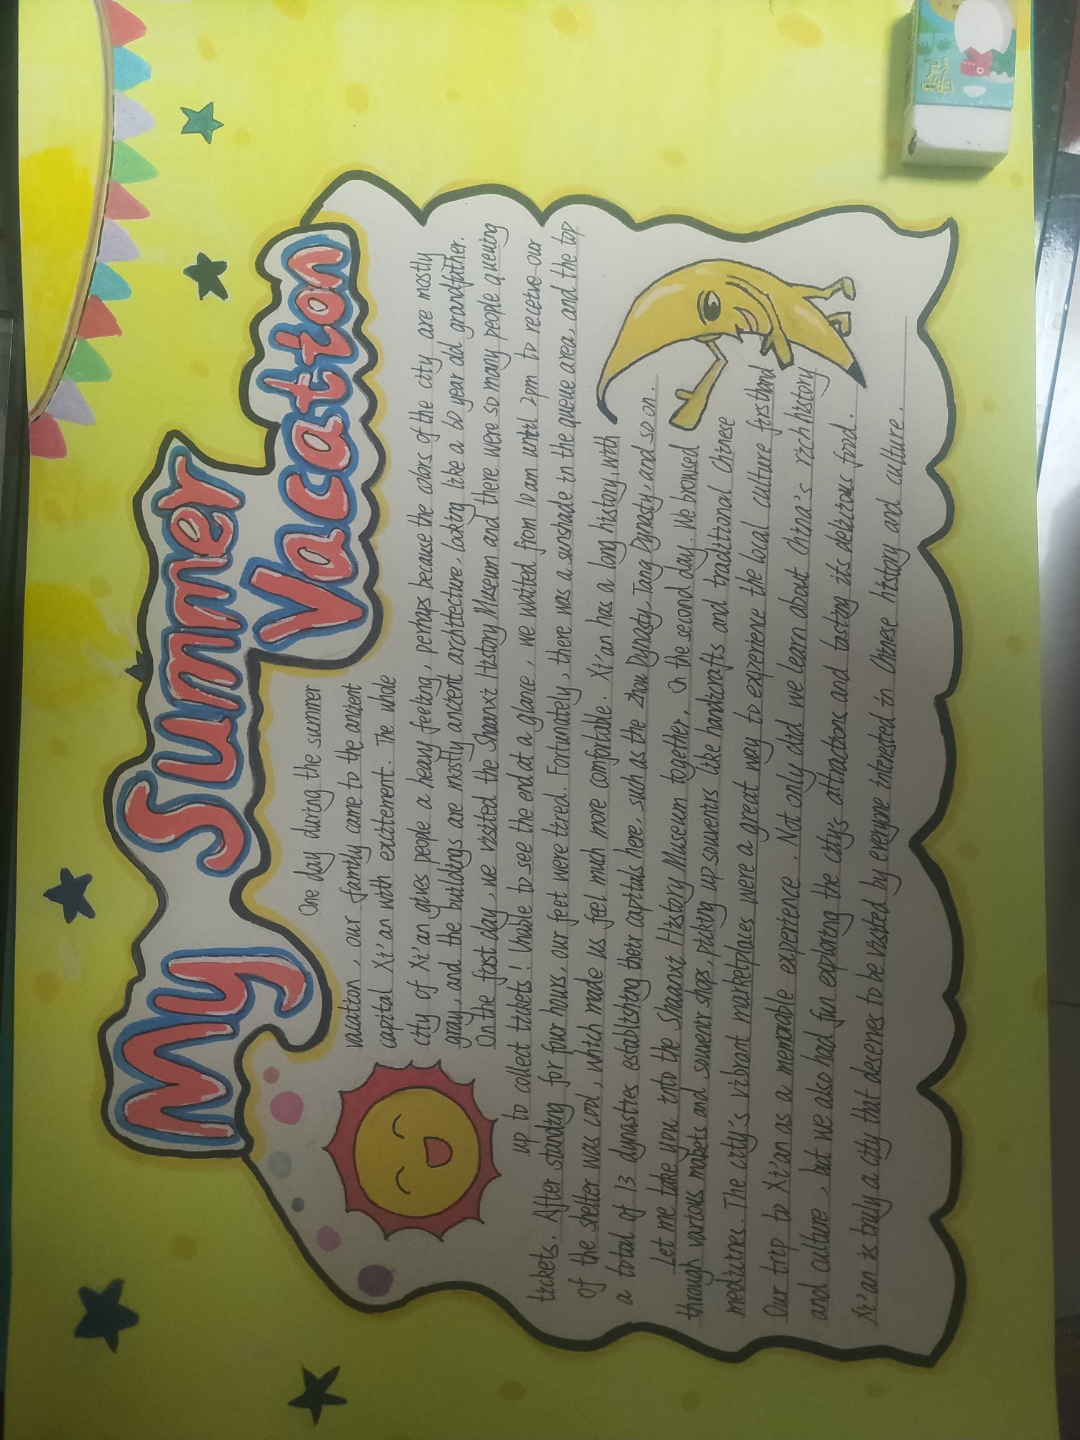 My Summer
Vacation
One day during the summer
vacation, our family came to the ancient
capital Xi'an with excitement. The whole
city of Xi'an gives people a heavy feeling, perhaps because the colors of the city are mostly
gray, and the buildings are mostly ancient architecture. Looking like a 60 year old grandfather.
On the first day, we visited the Shaanxi History Museum and there were so many people queuing
up to collect tickets! Unable to see the end at a glance, we waited from 10 am until 2pm to receive our
tickets. After standing for four hours, our feet were tired. Fortunately, there was a sunshade in the queue area, and the top
of the shelter was cool, which made us feel much more comfortable. Xi'an has a long history, with
a total of 13 dynasties establishing their capitals here, such as the Zhou Dynasty, Tang Dynasty, and so on.
Let me take you into the Shaanxi History Museum together. On the second day, We browsed
through various markets and souvenir shops, picking up souvenirs like handicrafts and traditional Chinese
medicines. The city's vibrant marketplaces were a great way to experience the local culture firsthand
Our trip to Xi'an as a memorable experience. Not only did we learn about China's rich history
and culture, but we also had fun exploring the city's attractions and tasting its delicious food.
Xi'an is truly a city that deserves to be visited by everyone interested in Chinese history and culture.